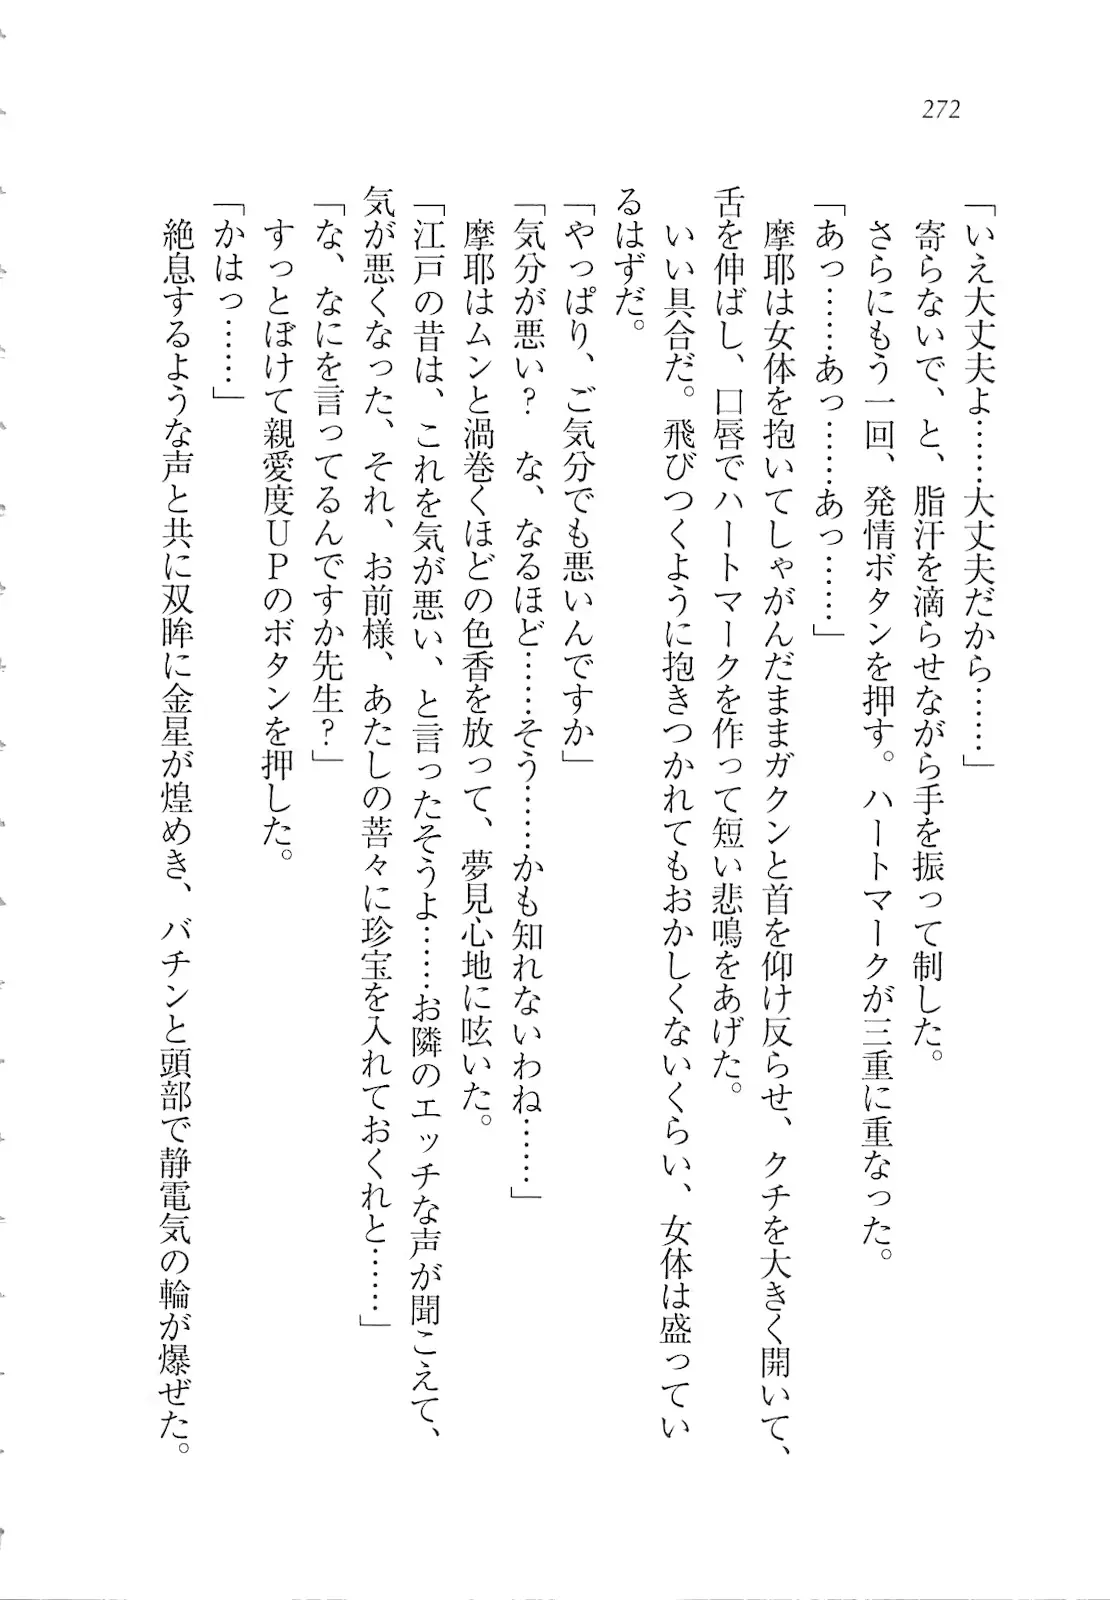 272
「いえ大丈夫よ……大丈夫だから……」
寄らないで、と、脂汗を滴らせながら手を振って制した。
さらにもう一回、発情ボタンを押す。ハートマークが三重に重なった。
「あっ……あっ……あっ……」
摩耶は女体を抱いてしゃがんだままガクンと首を仰け反らせ、クチを大きく開いて、
舌を伸ばし、口唇でハートマークを作って短い悲鳴をあげた。
いい具合だ。飛びつくように抱きつかれてもおかしくないくらい、女体は盛ってい
るはずだ。
「やっぱり、ご気分でも悪いんですか」
「気分が悪い？　な、なるほど……そう……かも知れないわね……」
摩耶はムンと渦巻くほどの色香を放って、夢見心地に呟いた。
「江戸の昔は、これを気が悪い、と言ったそうよ……お隣のエッチな声が聞こえて、
気が悪くなった、それ、お前様、あたしの菩々に珍宝を入れておくれと……」
「な、なにを言ってるんですか先生？」
すっとぼけて親愛度UPのボタンを押した。
「かはっ……」
絶息するような声と共に双眸に金星が煌めき、バチンと頭部で静電気の輪が爆ぜた。